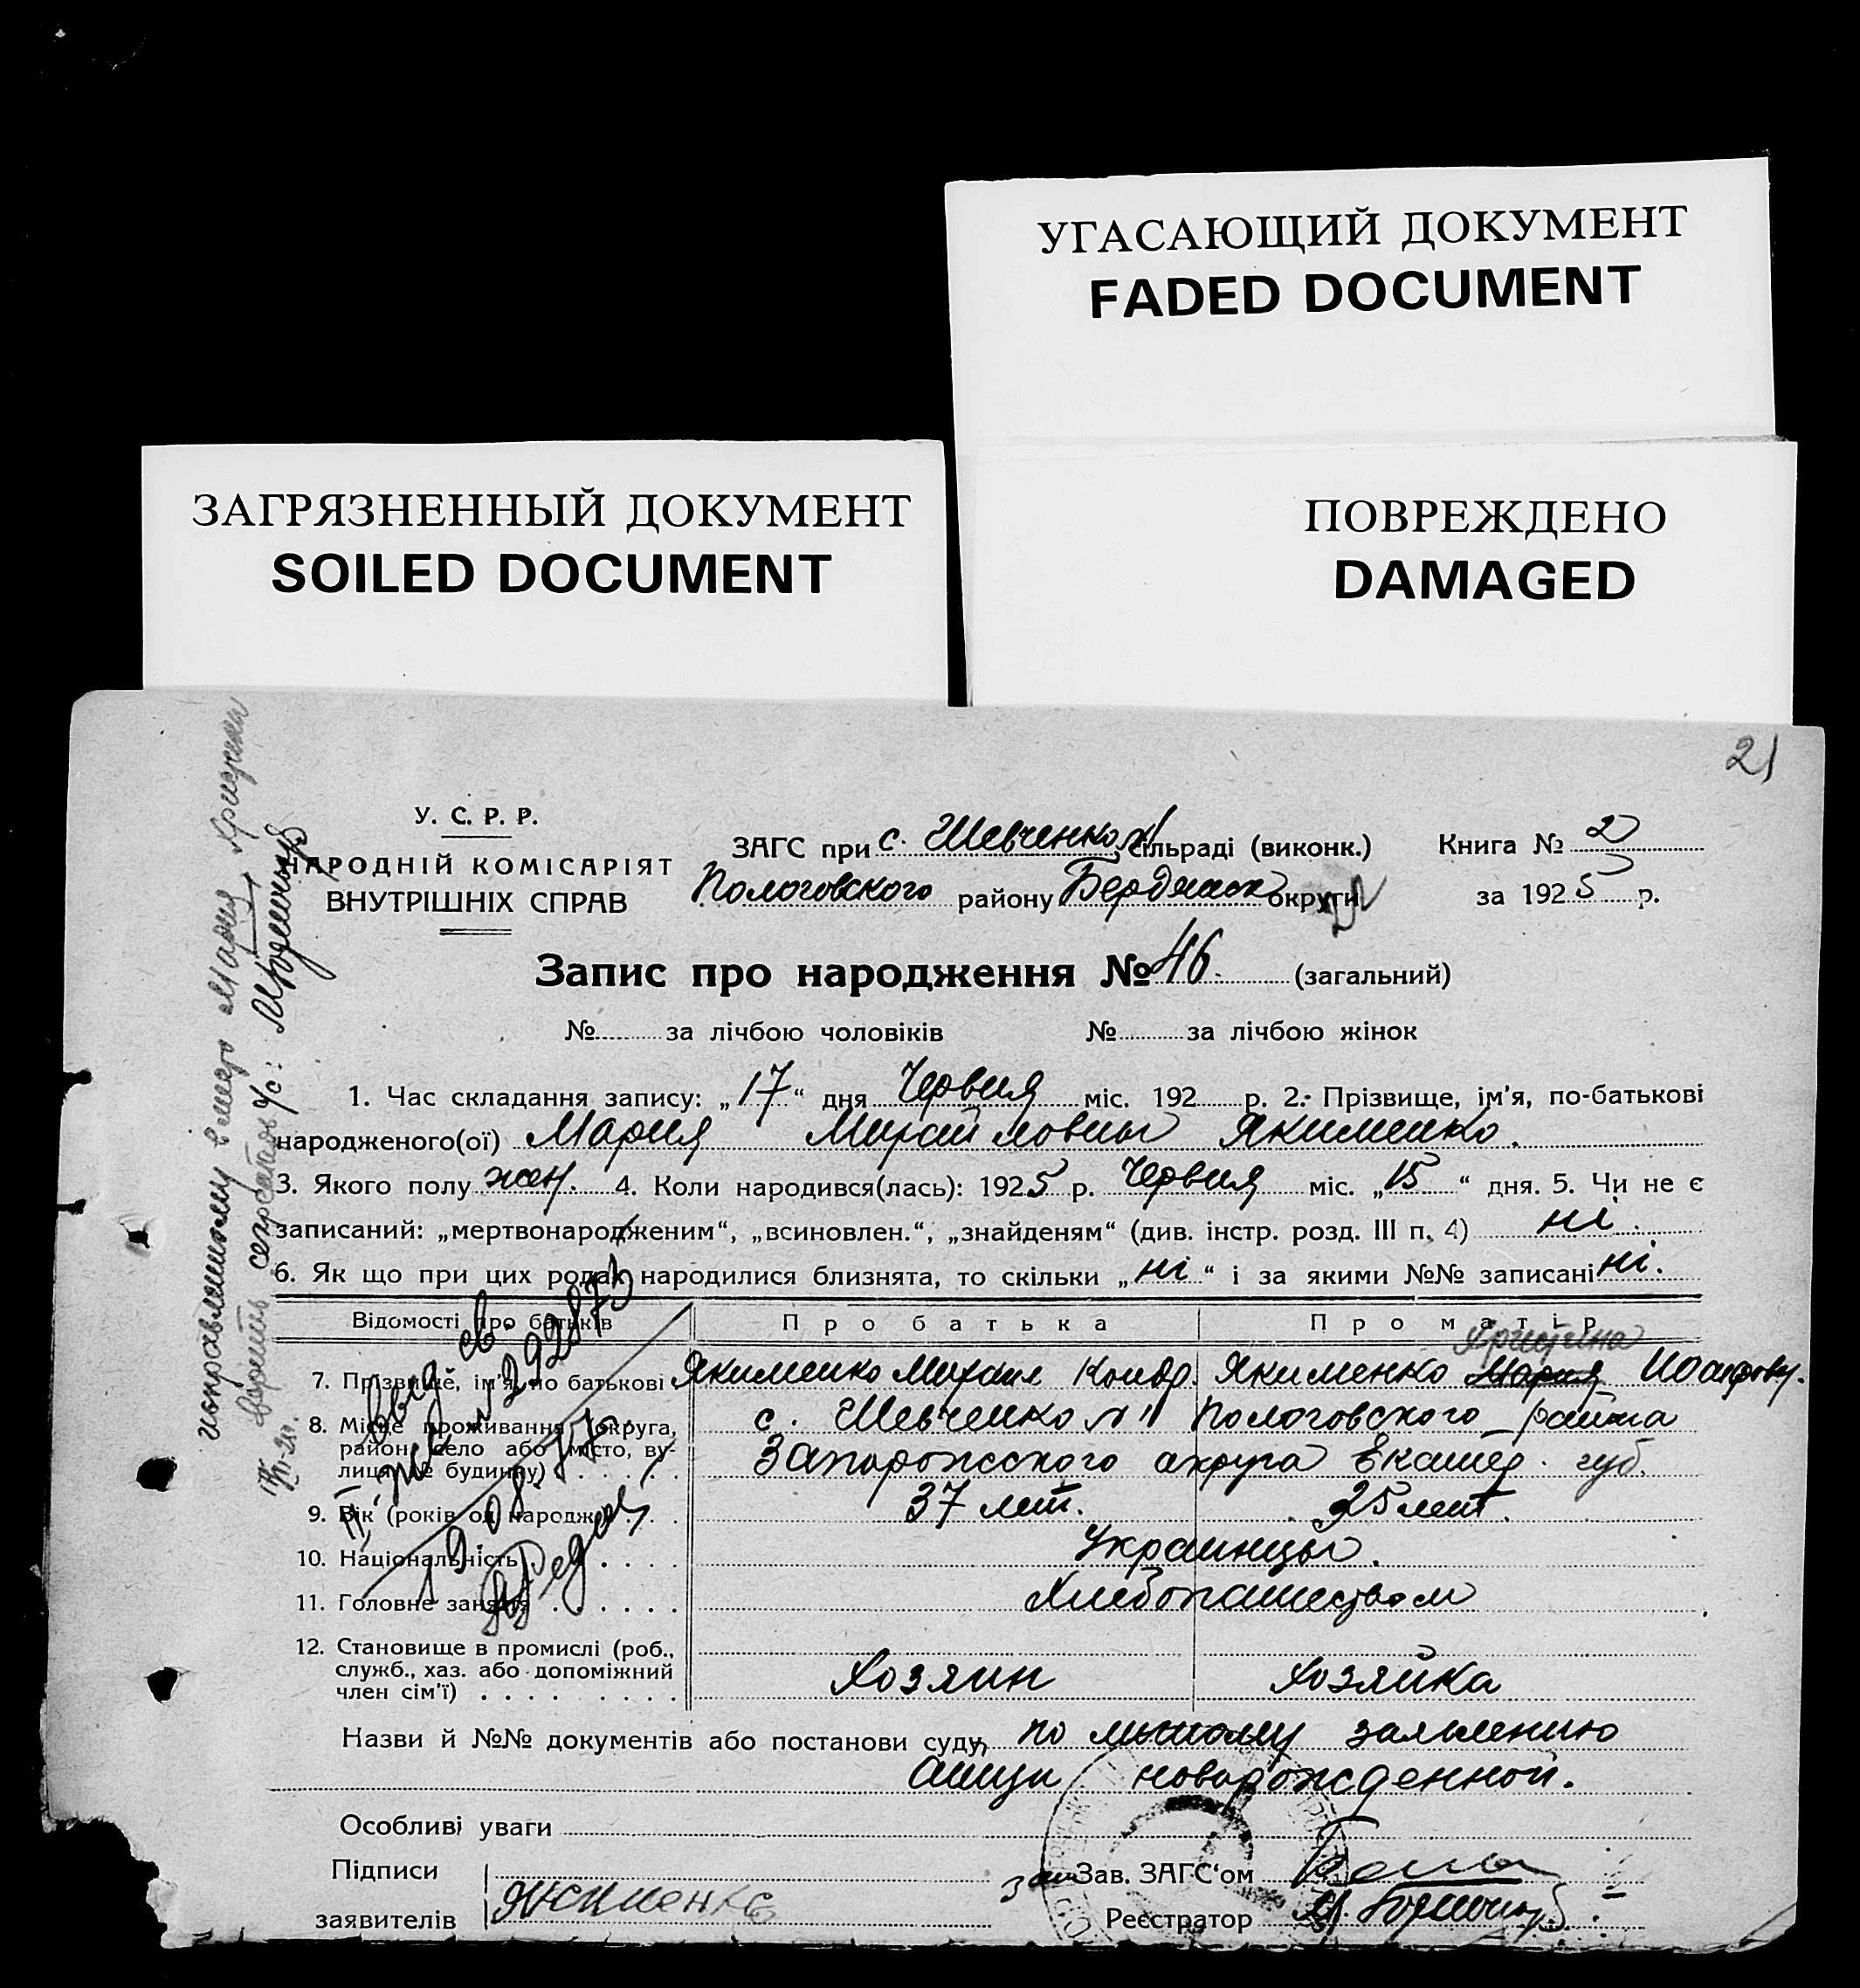 УГАСАЮЩИЙ ДОКУМЕНТ
FADED DOCUMENT
ЗАГРЯЗНЕННЫЙ ДОКУМЕНТ
SOILED DOCUMENT
ПОВРЕЖДЕНО
DAMAGED
21
У. С. Р. Р.
НАРОДНІЙ КОМІСАРІЯТ
ВНУТРІШНІХ СПРАВ
ЗАГС при с. Шевченко сільраді (виконк.) Книга № 2
Пологовского району Бердянск округи за 1925 р.
Запис про народження № 46. (загальний)
№ за лічбою чоловіків № за лічбою жінок
1. Час складання запису: „17“ дня Червня міс. 192 р. 2. Прізвище, ім'я, по-батькові
народженого(ої) Мария Михайловны Якименко.
3. Якого полу жен. 4. Коли народився(лась): 1925 р. Червня міс. „15“ дня. 5. Чи не є
записаний: „мертвонародженим“, „всиновлен.“, „знайденям“ (див. інстр. розд. III п. 4) ні.
6. Як що при цих родах народилися близнята, то скільки „ні“ і за якими №№ записані ні.
Відомості про батьків Про батька Про матір
Христина
7. Прізвище, ім'я, по батькові Якименко Михаил Кондр. Якименко Мария
8. Місце проживання (округа, район, село або місто, вулиця, № будинку) с. Шевченко Пологовского района
Запорожского округа Екатер. губ.
9. Вік (років од народж.) 37 лет. 25 лет.
10. Національність Украинцы.
11. Головне заняття Хлебопашеством
12. Становище в промислі (роб.,
служб., хаз. або допоміжний
член сім'ї) Хозяин Хозяйка
Назви й №№ документів або постанови суду по заявлению
новорожденной.
Особливі уваги
Підписи
заявителів Якименко
Зав. ЗАГС'ом
Реєстратор
исправленному Мария Христина
верить секретарь с/с: